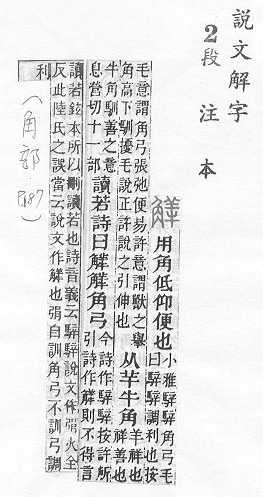 說文解字
2段注本
用角低仰便也 小雅騂騂角弓毛
曰騂騂調利也按
毛意謂角弓張弛便易許意謂獸之舉
角高下馴擾毛說正許說之引伸也 从羊牛角 羊祥也
祥善也
牛角馴善
息營切十一部 讀若詩曰觲觲角弓 今詩作騂騂按許所
引詩作觲則不得言
讀若鉉本所以刪讀若也詩音義云騂騂說文作弲火全
反此陸氏之誤當云說文作觲也弲自訓角弓不訓弓調
利
(角部 P187)